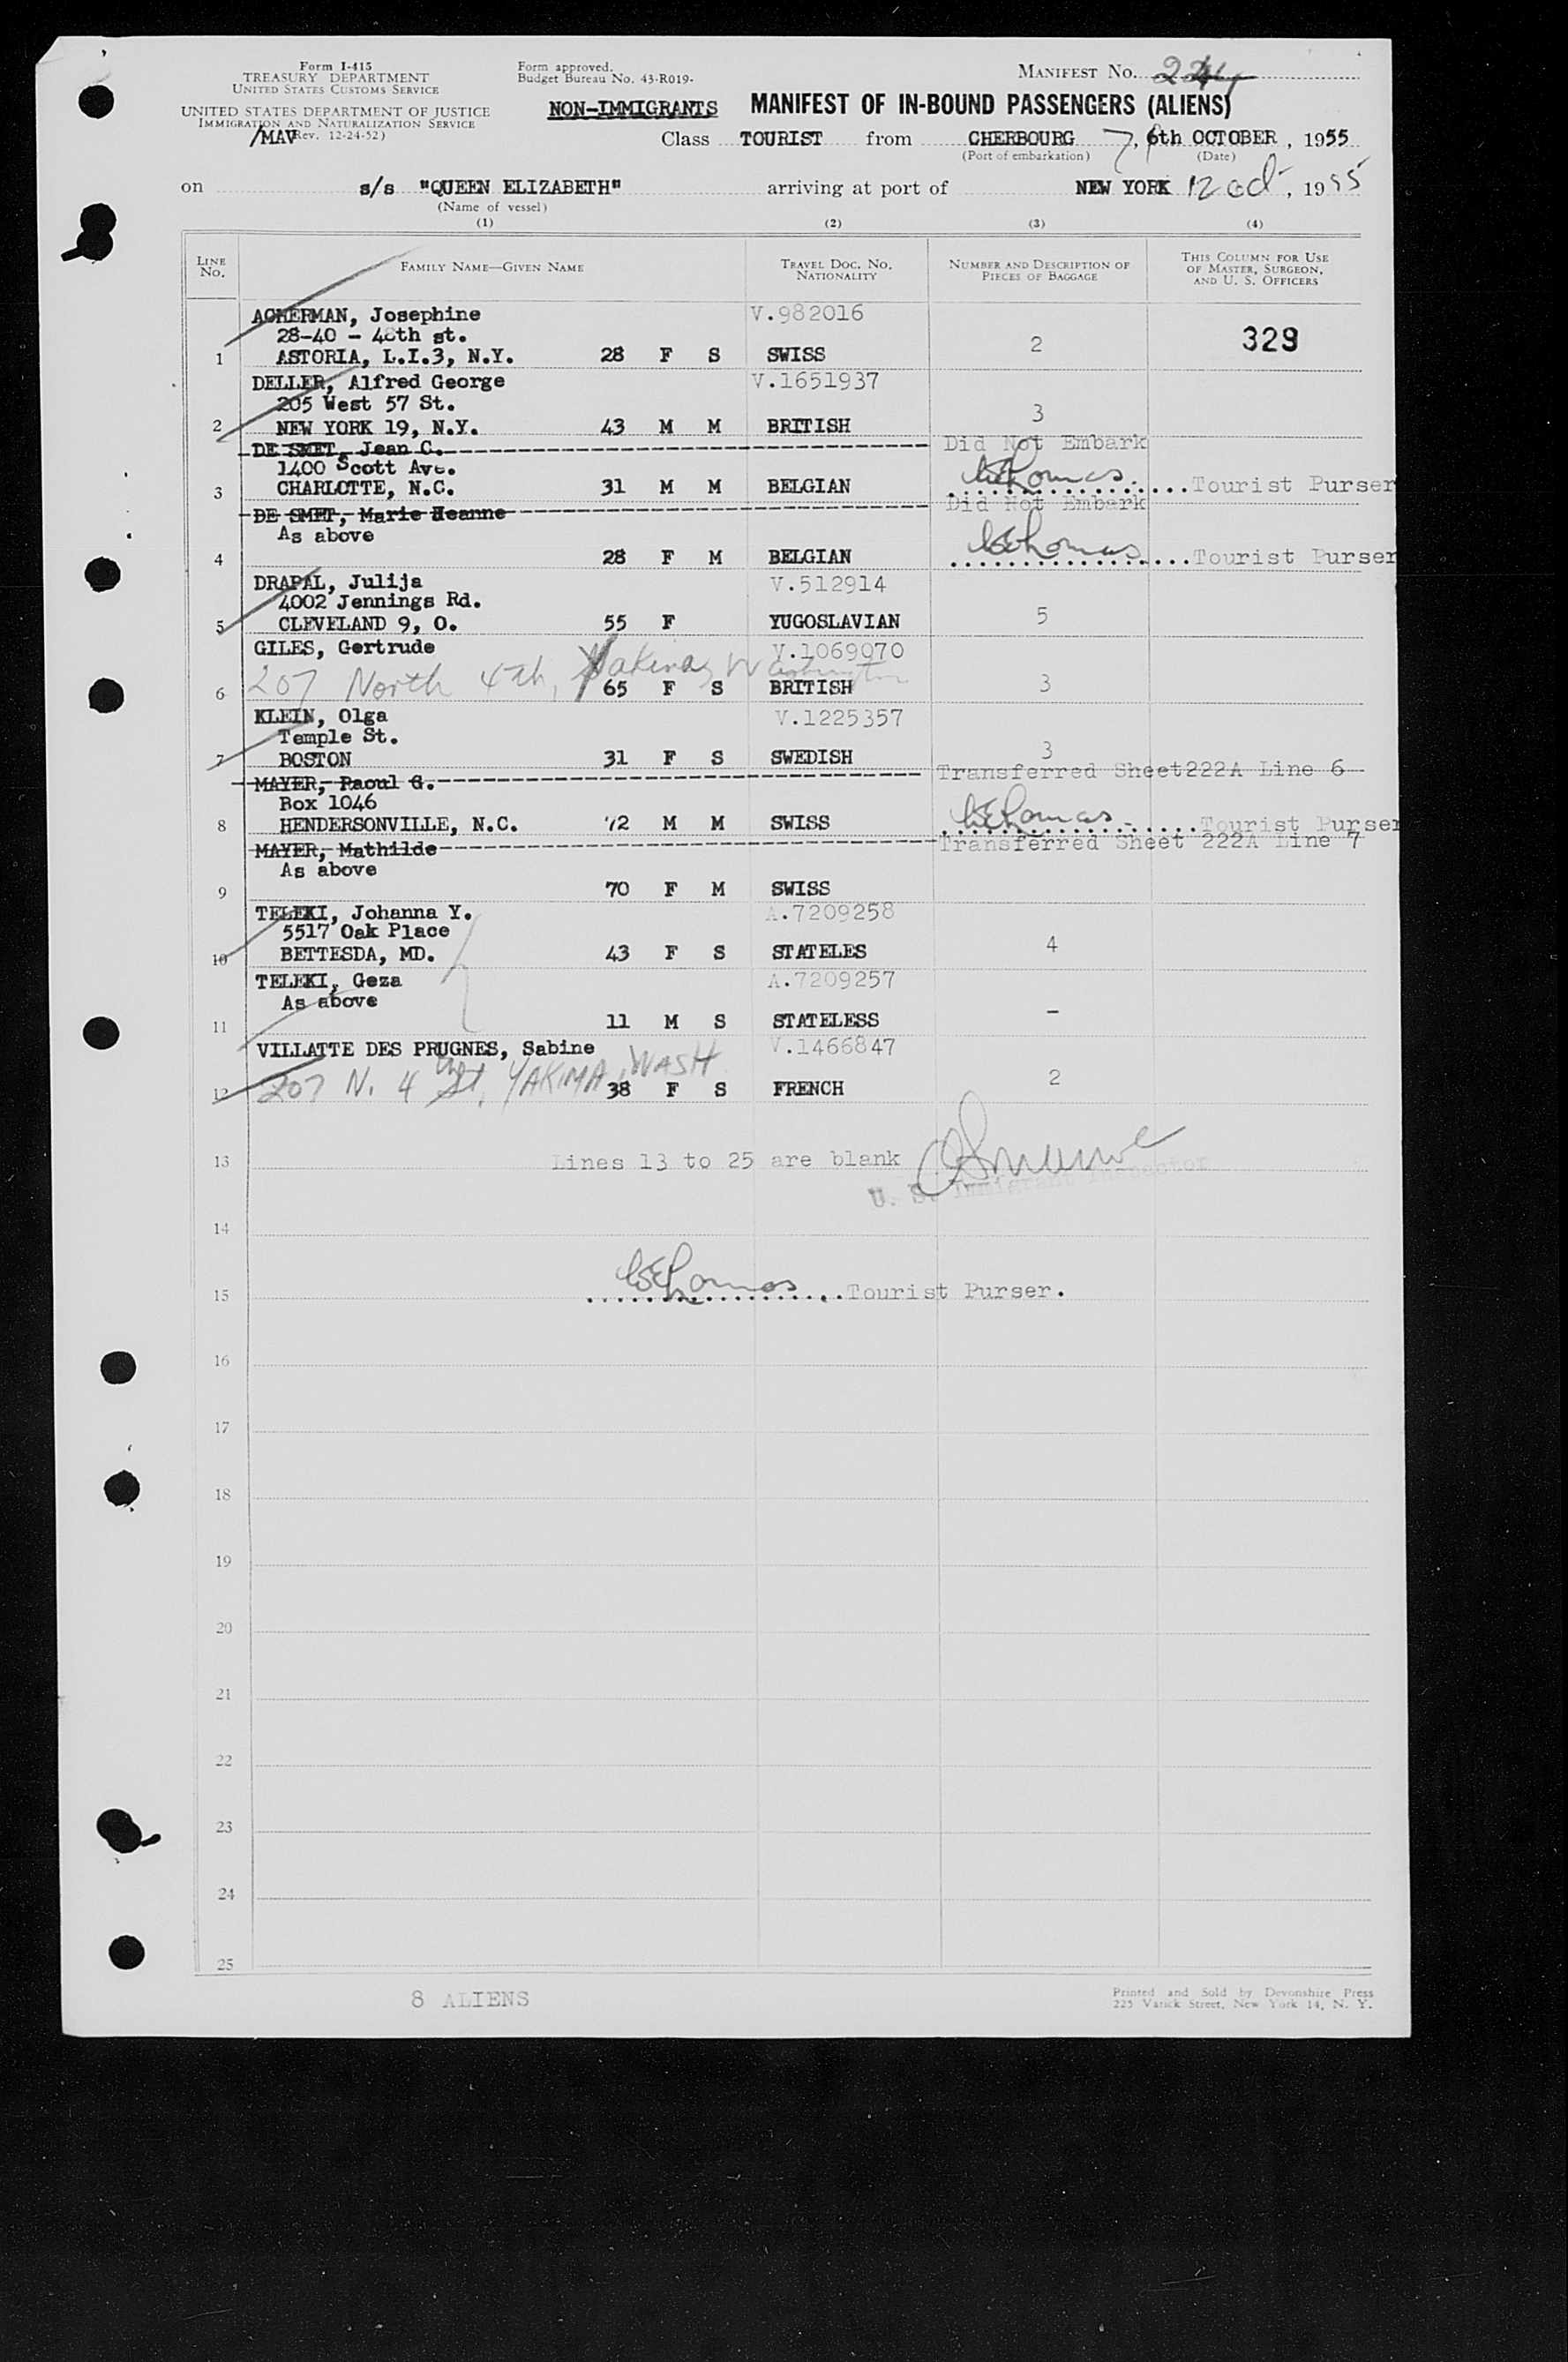 Form I-415
TREASURY DEPARTMENT
UNITED STATES CUSTOMS SERVICE
UNITED STATES DEPARTMENT OF JUSTICE
IMMIGRATION AND NATURALIZATION SERVICE
/MAV (Rev. 12-24-52)
Form approved.
Budget Bureau No. 43-R019-
MANIFEST No.
NON-IMMIGRANTS MANIFEST OF IN-BOUND PASSENGERS (ALIENS)
Class TOURIST from CHERBOURG 7, 6th OCTOBER, 1955
(Port of embarkation) (Date)
on s/s "QUEEN ELIZABETH" arriving at port of NEW YORK 12 Oct, 1955
(Name of vessel)
(1) (2) (3) (4)
LINE No. FAMILY NAME—GIVEN NAME TRAVEL DOC. NO. NATIONALITY NUMBER AND DESCRIPTION OF PIECES OF BAGGAGE THIS COLUMN FOR USE OF MASTER, SURGEON, AND U. S. OFFICERS
ACKERMAN, Josephine V.982016
28-40 - 48th st. 2 329
1 ASTORIA, L.I.3, N.Y. 28 F S SWISS
DELLER, Alfred George V.1651937
205 West 57 St. 3
2 NEW YORK 19, N.Y. 43 M M BRITISH
DE SMET, Jean C. Did Not Embark
1400 Scott Ave.
3 CHARLOTTE, N.C. 31 M M BELGIAN WEThomas Tourist Purser
DE SMET, Marie Jeanne Did Not Embark
As above
4 28 F M BELGIAN WEThomas Tourist Purser
DRAPAL, Julija V.512914
4002 Jennings Rd. 5
5 CLEVELAND 9, O. 55 F YUGOSLAVIAN
GILES, Gertrude V.1069070
207 North 4th, Yakima, Washington
6 65 F S BRITISH 3
KLEIN, Olga V.1225357
Temple St.
7 BOSTON 31 F S SWEDISH 3
MAYER, Raoul G. Transferred Sheet222A Line 6
Box 1046
8 HENDERSONVILLE, N.C. 72 M M SWISS WEThomas Tourist Purser
MAYER, Mathilde Transferred Sheet 222A Line 7
As above
9 70 F M SWISS
TELEKI, Johanna Y. A.7209258
5517 Oak Place
10 BETTESDA, MD. 43 F S STATELES 4
TELEKI, Geza A.7209257
As above
11 11 M S STATELESS -
VILLATTE DES PRUGNES, Sabine V.1466847
207 N. 4th St, YAKIMA, WASH
12 38 F S FRENCH 2
13 Lines 13 to 25 are blank
U. S. Immigrant Inspector
14
WEThomas
15 Tourist Purser.
16
17
18
19
20
21
22
23
24
25
8 ALIENS
Printed and Sold by Devonshire Press
225 Varick Street, New York 14, N. Y.